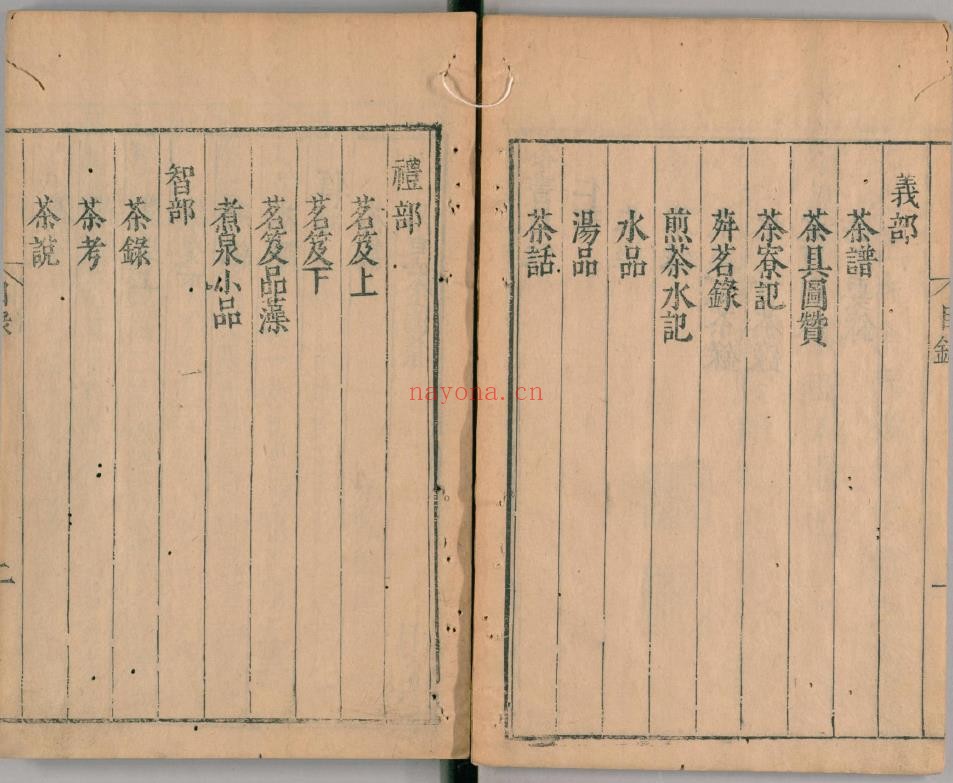 義部
茶譜
茶具圖贊
茶寮記
荈茗錄
煎茶水記
水品
湯品
茶話
禮部
茗笈上
茗笈下
茗笈品藻
煮泉小品
智部
茶錄
茶考
茶説
目錄
一
目錄
二
nayona.cn